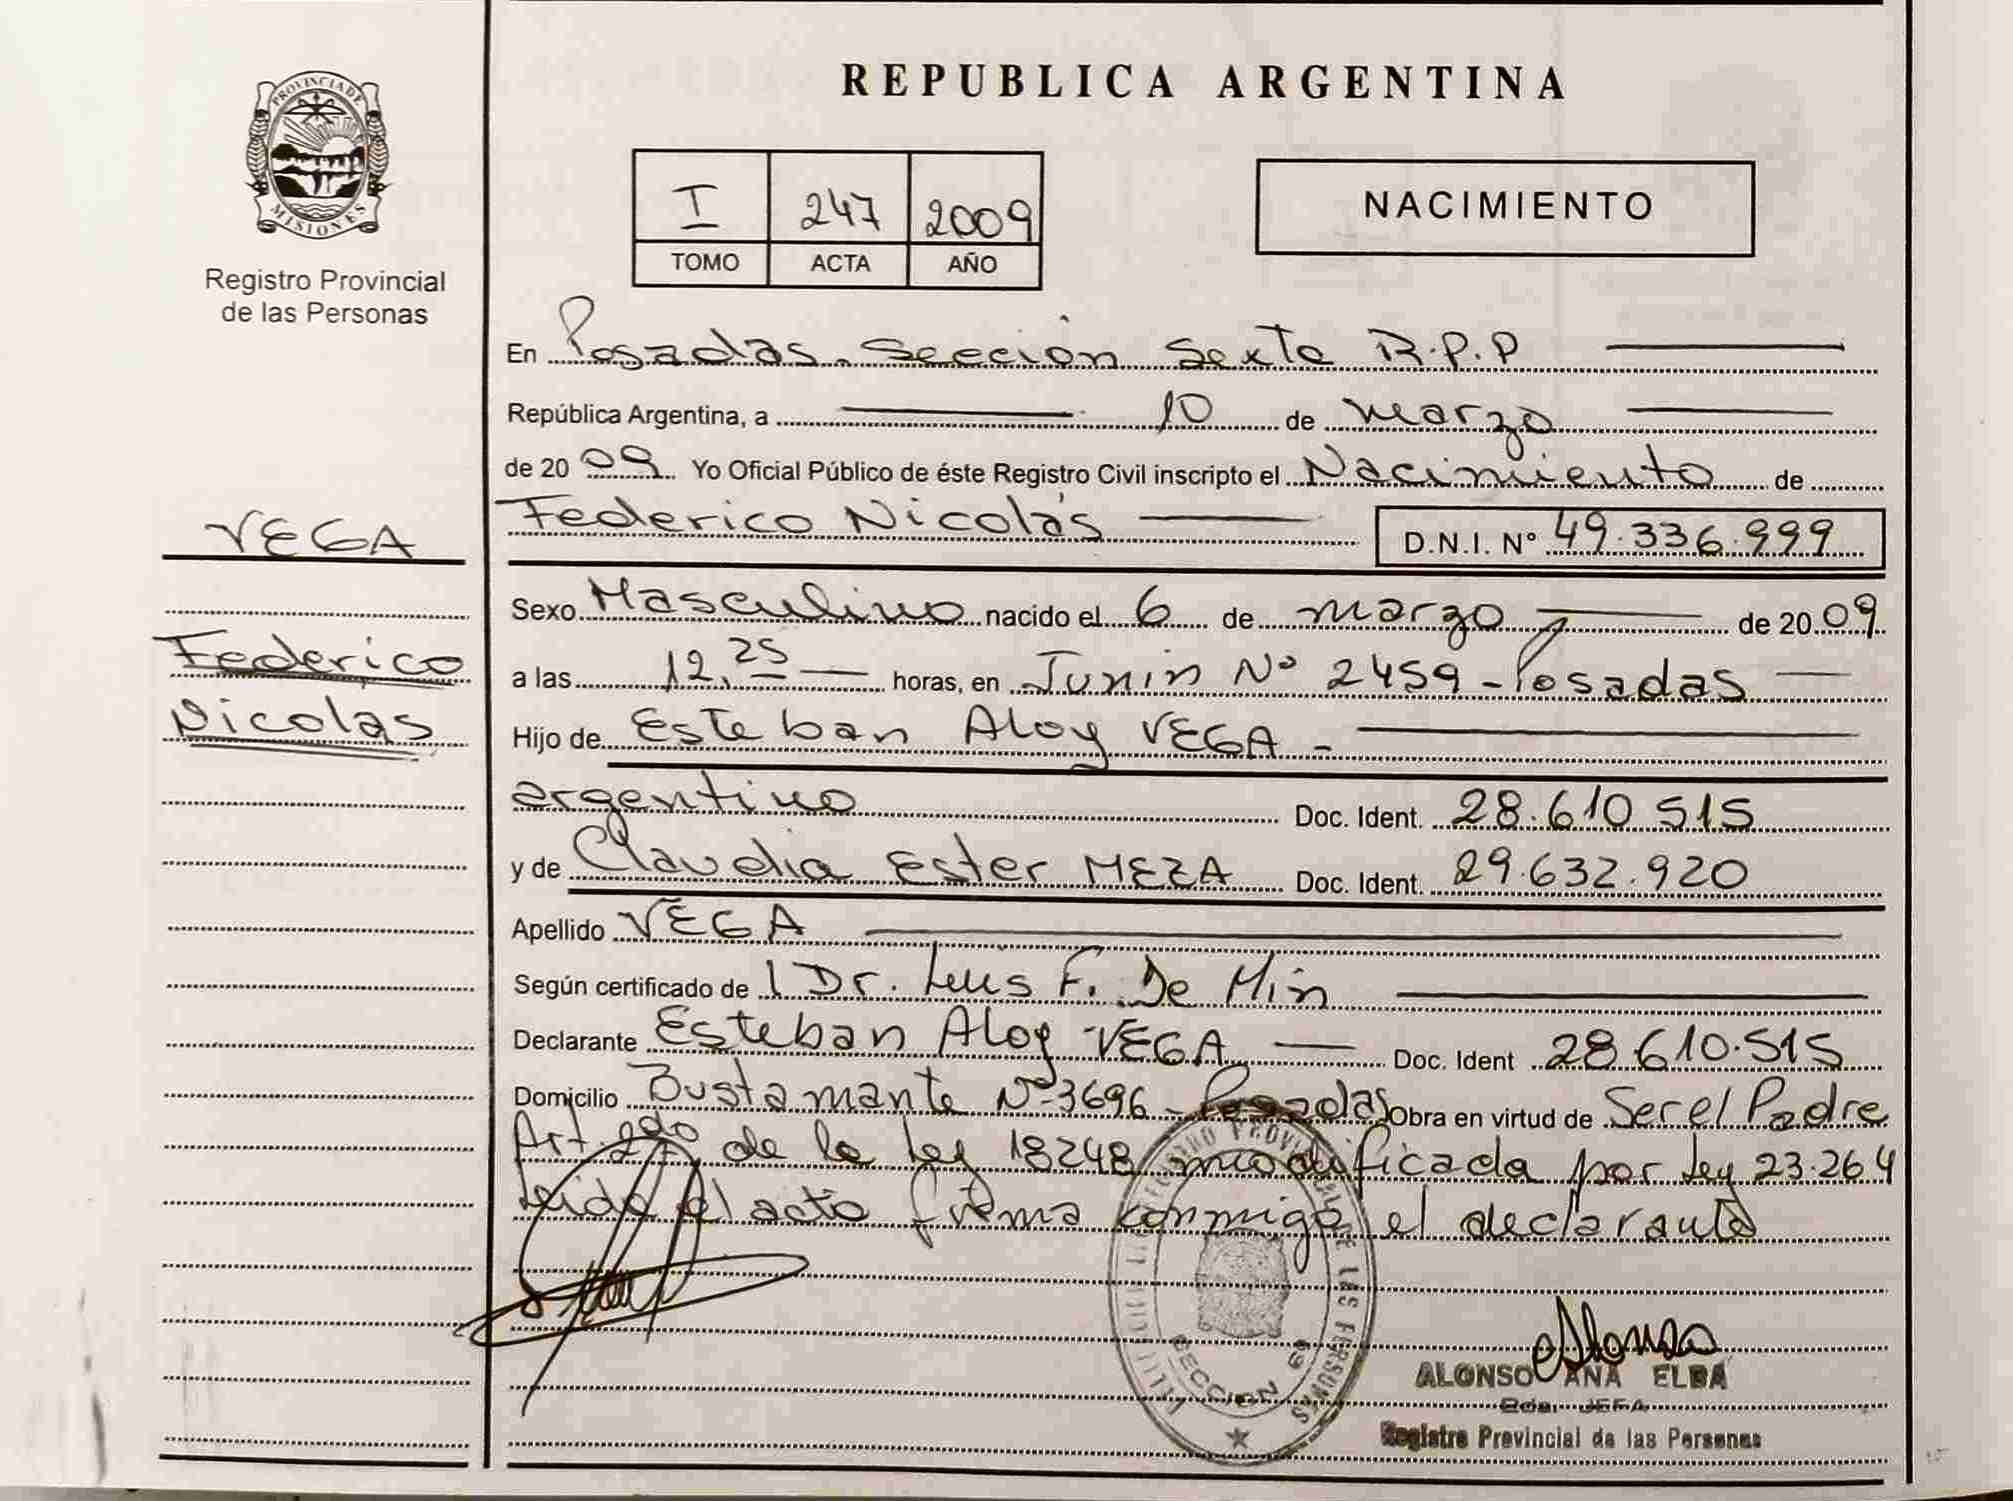 PROVINCIA DE
MISIONES
Registro Provincial
de las Personas
VEGA
Federico
Nicolas
REPUBLICA ARGENTINA
I 247 2009
TOMO ACTA AÑO
NACIMIENTO
En Posadas. Sección Sexta R.P.P
República Argentina, a 10 de marzo
de 2009 Yo Oficial Público de éste Registro Civil inscripto el Nacimiento de
Federico Nicolás D.N.I. Nº 49.336.999
Sexo Masculino nacido el 6 de marzo de 2009
a las 12,25 horas, en Junin Nº 2459 - Posadas
Hijo de Esteban Aloy VEGA -
argentino Doc. Ident. 28.610 515
y de Claudia Ester MEZA Doc. Ident. 29.632.920
Apellido VEGA
Según certificado de Dr. Luis F. De Min
Declarante Esteban Aloy VEGA Doc. Ident 28.610.515
Domicilio Bustamante Nº 3696 - Posadas Obra en virtud de Ser el Padre
Art. 2do de la Ley 18248 modificada por Ley 23.264
Leida el acta firma conmigo el declarante
SECCION
ALONSO ANA ELBA
JEFA
Registro Provincial de las Personas